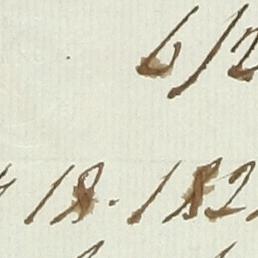 6/2
18. 182